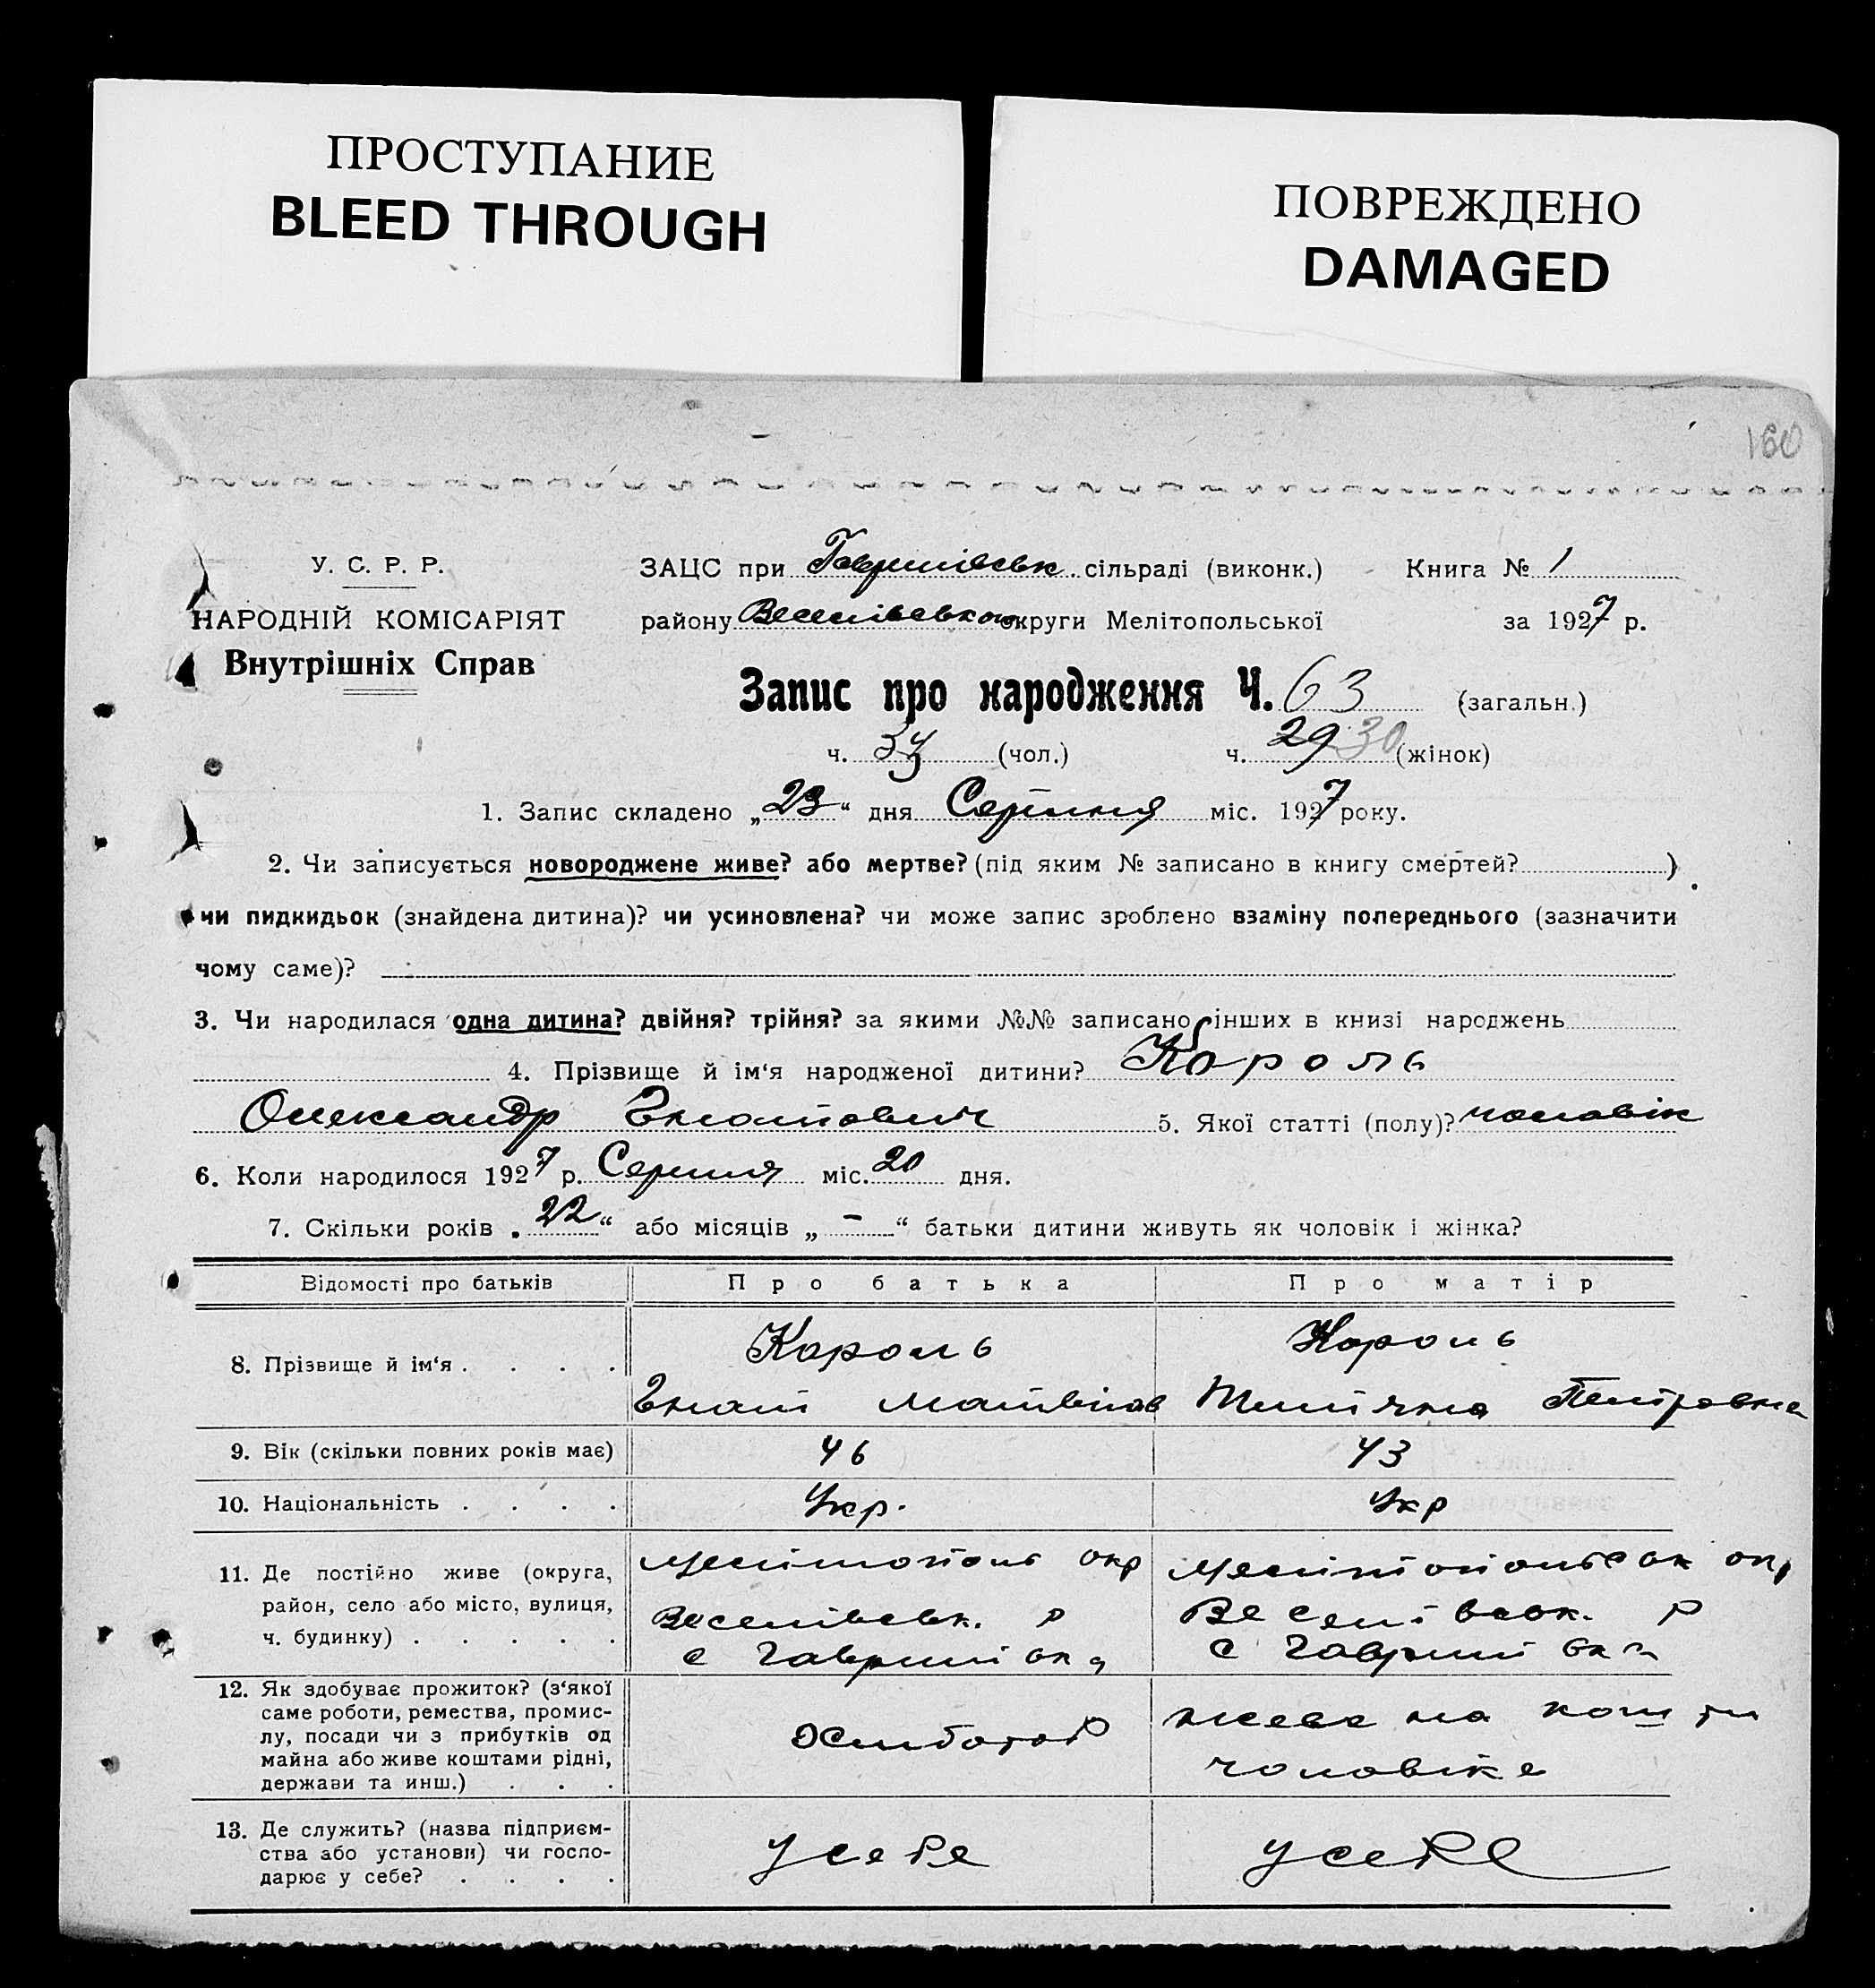 ПРОСТУПАНИЕ
BLEED THROUGH
ПОВРЕЖДЕНО
DAMAGED
160
У. С. Р. Р.
НАРОДНІЙ КОМІСАРІЯТ
Внутрішніх Справ
ЗАЦС при Гаврилівськ. сільраді (виконк.) Книга № 1
району Веселівського округи Мелітопольської за 1927 р.
Запис про народження Ч. 63 (загальн.)
ч. 34 (чол.) ч. 29 30 (жінок)
1. Запис складено „23“ дня Серпня міс. 1927 року.
2. Чи записується новороджене живе? або мертве? (під яким № записано в книгу смертей? )
чи пидкидьок (знайдена дитина)? чи усиновлена? чи може запис зроблено взаміну попереднього (зазначити
чому саме)?
3. Чи народилася одна дитина? двійня? трійня? за якими №№ записано інших в книзі народжень
4. Прізвище й ім‘я народженої дитини? Король
Олександр Гнатович 5. Якої статті (полу)? чоловік
6. Коли народилося 1927 р. Серпня міс. 20 дня.
7. Скільки років „22“ або місяців „ – “ батьки дитини живуть як чоловік і жінка?
Відомості про батьків Про батька Про матір
8. Прізвище й ім‘я . . . . Король Король
Гнат Матвієв Титяна Петровна
9. Вік (скільки повних років має) 46 43
10. Національність . . . . Укр. Укр
11. Де постійно живе (округа,
район, село або місто, вулиця,
ч. будинку) . . . . .
Мелітополь окр
Веселівськ. р
с Гаврилівка
Мелітопольськ окр
Веселівськ. р
с Гаврилівка
12. Як здобуває прожиток? (з‘якої
саме роботи, ремества, промис-
лу, посади чи з прибутків од
майна або живе коштами рідні,
держави та инш.) . . .
Хлібороб
живе на кошти
чоловіка
13. Де служить? (назва підприєм-
ства або установи) чи госпо-
дарює у себе? . . . .
У себе
У себе